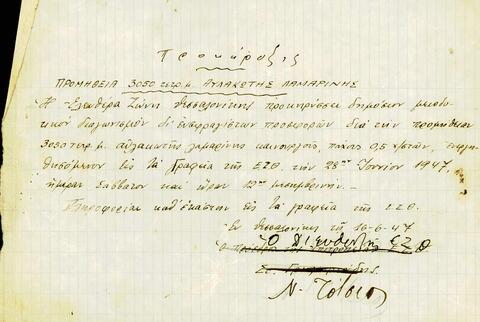 Προκήρυξις
ΠΡΟΜΗΘΕΙΑ 3050 τετρ.μ. ΑΥΛΑΚΩΤΗΣ ΛΑΜΑΡΙΝΗΣ
Η Ἐλευθέρα Ζώνη Θεσσαλονίκης προκηρύσσει δημόσιον μειοδο-
τικόν διαγωνισμόν δι' ἐνσφραγίστων προσφορῶν διά τήν προμήθειαν
3050 τετρ.μ. αὐλακωτῆς λαμαρίνης καινουργοῦς, πάχους 0,5 χ)στῶν, τελεσθη-
σόμενον εἰς τά γραφεῖα τῆς ΕΖΘ. τήν 28ην Ἰουνίου 1947,
ἡμέραν Σάββατον καί ὥραν 12ην μεσημβρινήν.-
Πληροφορίαι καθ' ἑκάστην εἰς τά γραφεῖα τῆς ΕΖΘ.
Ἐν Θεσσαλονίκῃ τῇ 16-6-47
Ὁ Διευθυντής ΕΖΘ